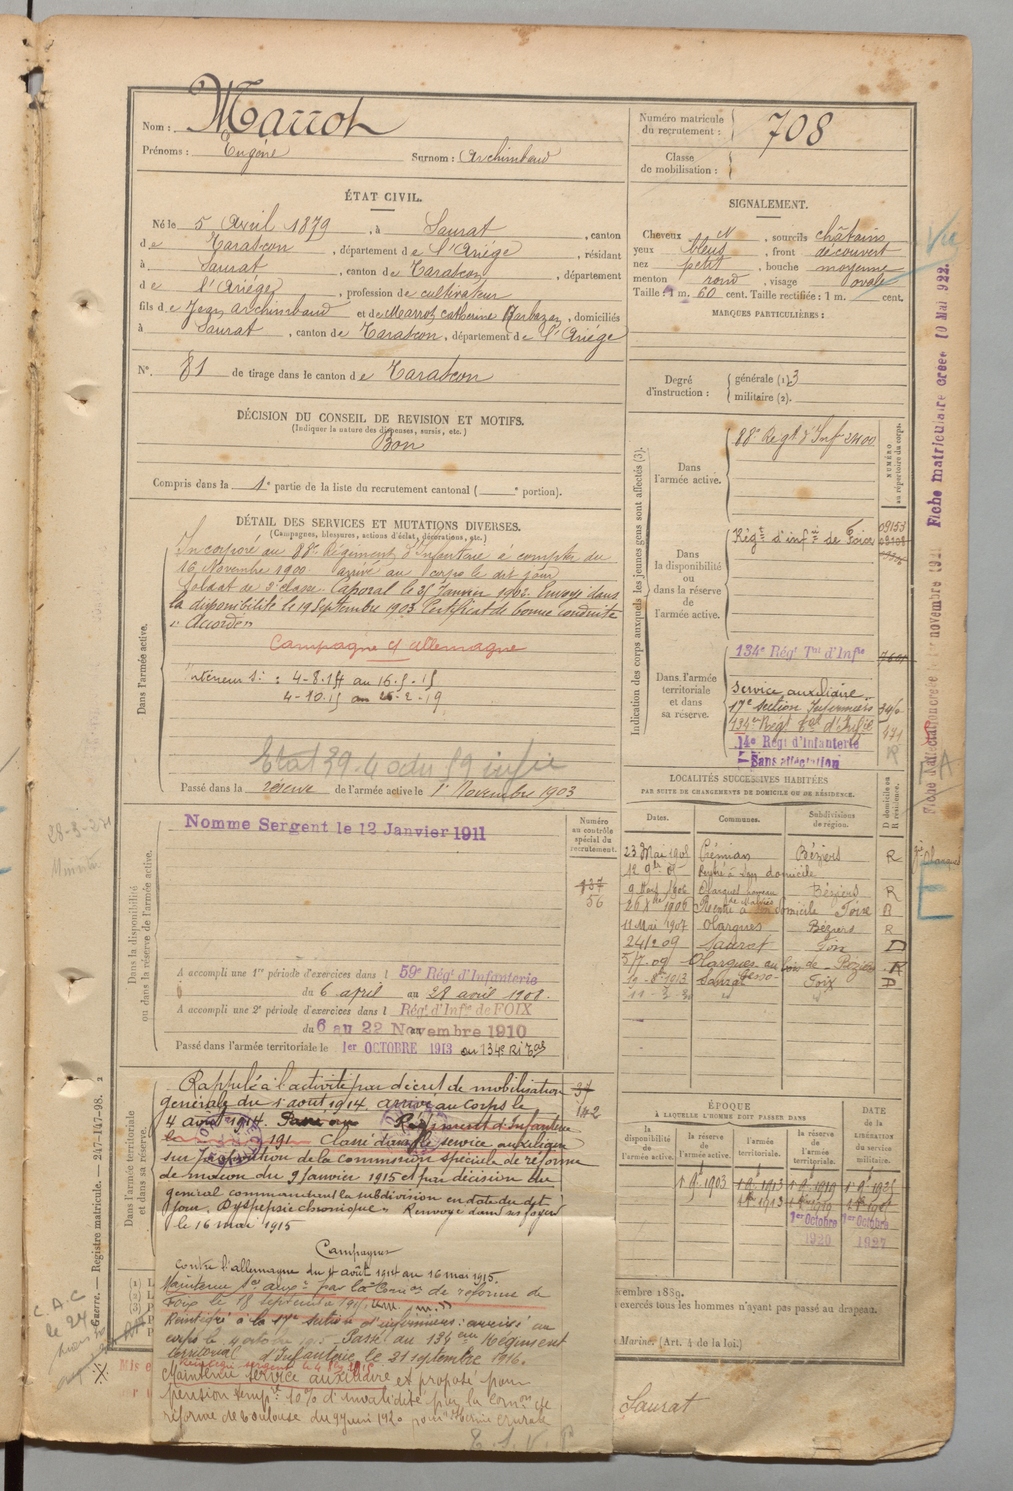 Nom : Marrot
Prénoms : Eugène Surnom : Archimbaud
Numéro matricule du recrutement : 708
Classe de mobilisation :
ÉTAT CIVIL.
Né le 5 Avril 1879, à Saurat, canton
de Tarascon, département de l'Ariège, résidant
à Saurat, canton de Tarascon, département
de l'Ariège, profession de cultivateur
fils de Jean Archimbaud et de Marrot Catherine, domiciliés
à Saurat, canton de Tarascon, département de l'Ariège
N° 81 de tirage dans le canton de Tarascon
SIGNALEMENT.
Cheveux N, sourcils châtains
yeux bleus, front découvert
nez petit, bouche moyenne
menton rond, visage ovale
Taille : 1 m. 60 cent. Taille rectifiée : 1 m. cent.
MARQUES PARTICULIÈRES :
Degré d'instruction : générale (1) 3
militaire (2).
DÉCISION DU CONSEIL DE REVISION ET MOTIFS.
(Indiquer la nature des dispenses, sursis, etc.)
Bon
Compris dans la 1e partie de la liste du recrutement cantonal ( e portion).
DÉTAIL DES SERVICES ET MUTATIONS DIVERSES.
(Campagnes, blessures, actions d'éclat, décorations, etc.)
Dans l'armée active.
Incorporé au 88e Régiment d'Infanterie à compter du
16 Novembre 1900. arrivé au corps le dit jour
Soldat de 2e classe. Caporal le Janvier 1902. Envoyé dans
la disponibilité le 19 Septembre 1903. Certificat de bonne conduite
"Accordé"
Campagne c/ allemagne
Intérieur S : 4-8.14 au 16.5.15
4-10.15 au 26-2.19
Passé dans la réserve de l'armée active le 1er Novembre 1903
Dans la disponibilité ou dans la réserve de l'armée active.
Nomme Sergent le 12 Janvier 1911
Numéro au contrôle spécial du recrutement.
137
56
A accompli une 1re période d'exercices dans l 59e Régt d'Infanterie
du 6 avril au 28 avril 1908.
A accompli une 2e période d'exercices dans l Régt d'Infie de FOIX
du 6 au 22 Novembre 1910
Passé dans l'armée territoriale le 1er OCTOBRE 1913 au 134e RI Tal
Dans l'armée territoriale et dans sa réserve.
Rappelé à l'activité par décret de mobilisation
générale du 1 aout 1914. arrivé au corps le
4 aout 1914. Passé au Régiment d'Infanterie
le 191 Classé dans le service auxiliaire
sur proposition de la commission spéciale de réforme
de du 9 Janvier 1915 et par décision du
général commandant la subdivision en date du dit
jour. Dyspepsie chronique. Renvoyé dans ses foyers
le 16 mai 1915
Campagnes
Contre l'allemagne du 4 août 1914 au 16 mai 1915.
Maintenu Sce auxre par la Comon de réforme de
Foix le 18 septembre 1915.
Réintégré à la 17e section d'infirmiers : arrivé au
corps le 4 octobre 1915. Passé au 134eme Régiment
territorial d'Infanterie, le 21 septembre 1916.
Maintenu service auxiliaire et proposé pour
pension tempre 10% d'invalidité par la Comon de
réforme de Toulouse du 9 juin 1920 pour Hernie crurale
T. S. V. P.
Indication des corps auxquels les jeunes gens sont affectés (3).
NUMÉRO au répertoire du corps.
Dans l'armée active.
88e Régt d'Inf 2400
Dans la disponibilité ou dans la réserve de l'armée active.
Régt d'infie de Foix
Dans l'armée territoriale et dans sa réserve.
134e Régt Tal d'Infie
Service auxiliaire
17e section Infirmiers
134e Régt Tal d'Infie
14e Régt d'Infanterie
Sans affectation
LOCALITÉS SUCCESSIVES HABITÉES
PAR SUITE DE CHANGEMENTS DE DOMICILE OU DE RÉSIDENCE.
D domicile ou R résidence.
Dates. Communes. Subdivisions de région.
23 Mai 1905 Prémian Béziers R
Rentré à son domicile
9 1906 Olargues Béziers R
1906 Rentré à son domicile Foix
11 Mai 1907 Olargues Béziers R
24/2 09 Saurat Foix D
5/7.09 Olargues Béziers R
1913 Saurat Foix D
ÉPOQUE
À LAQUELLE L'HOMME DOIT PASSER DANS
DATE DE LA LIBÉRATION DU SERVICE MILITAIRE.
la disponibilité de l'armée active.
la réserve de l'armée active.
l'armée territoriale.
la réserve de l'armée territoriale.
1er Octobre 1920
1er Octobre 1927
exercés tous les hommes n'ayant pas passé au drapeau.
Marine. (Art. 4 de la loi.)
Saurat
Guerre. — Registre matricule. — 247-147-98.
Fiche matriculaire créée 10 Mai 922.